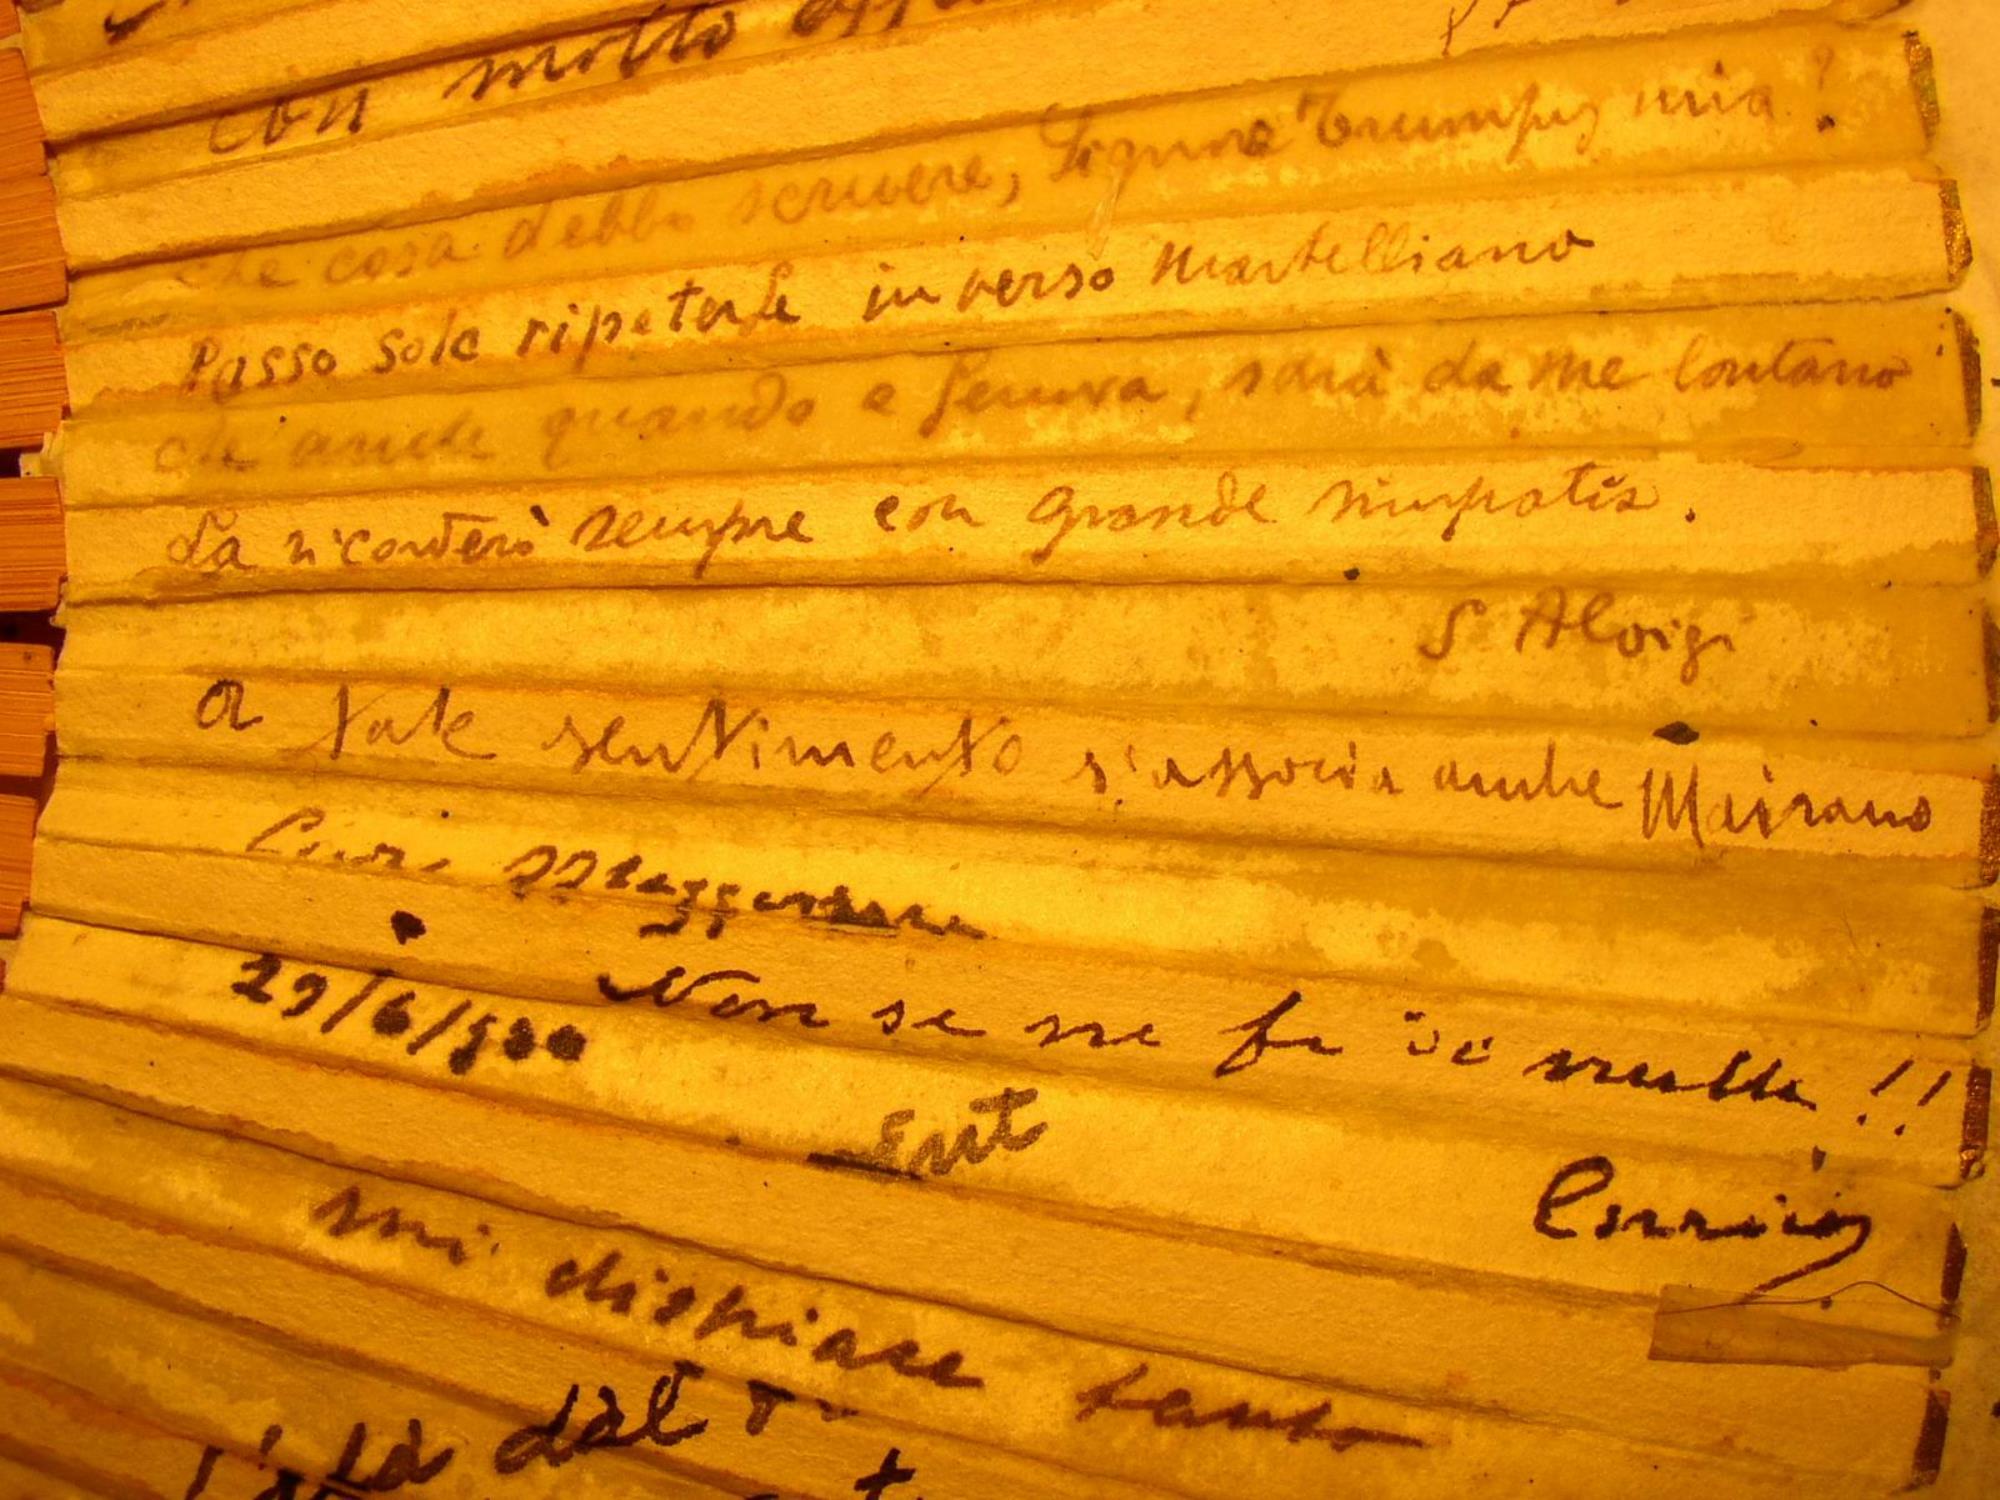 con molto
che cosa debbo scrivere, Signora Trumpy mia!
Posso solo ripeterle in verso martelliano
che anche quando a Genova, sarà da me lontano
La ricorderò sempre con grande simpatia.
S Aloigi
A tale sentimento s'associa anche Mairano
29/6/900
Non se ne fa de nulla!!
mi dispiace tanto
dal